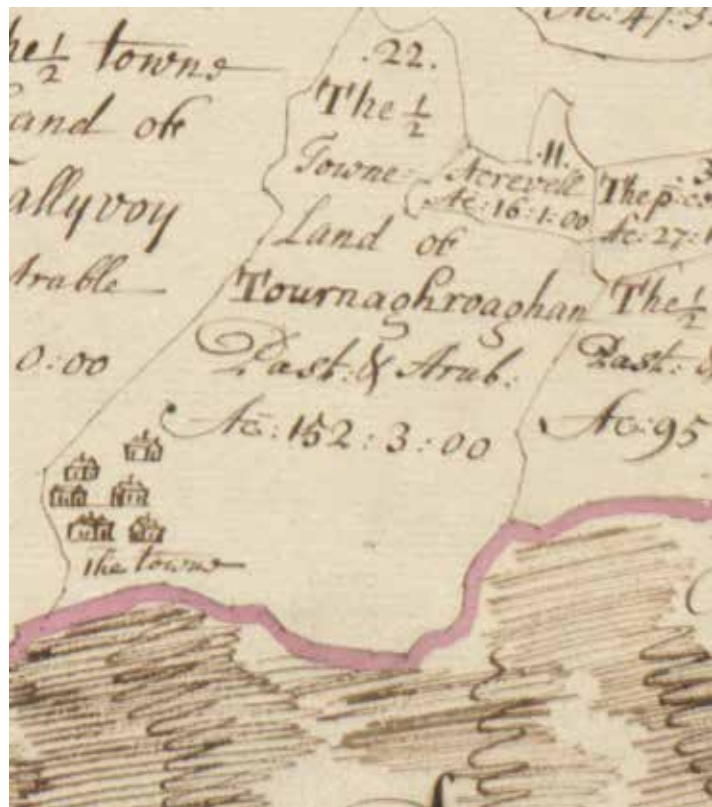 he ½ towne
Land of
allyvoy
Arable
0:00
.22.
The ½
Towne
Land of
Tournaghroaghan
Past: & Arab:
Ac: 152:3:00
.11.
Acrevell
Ac: 16:1:00
Ac: 27:
The ½
Past: &
Ac: 95
the towne